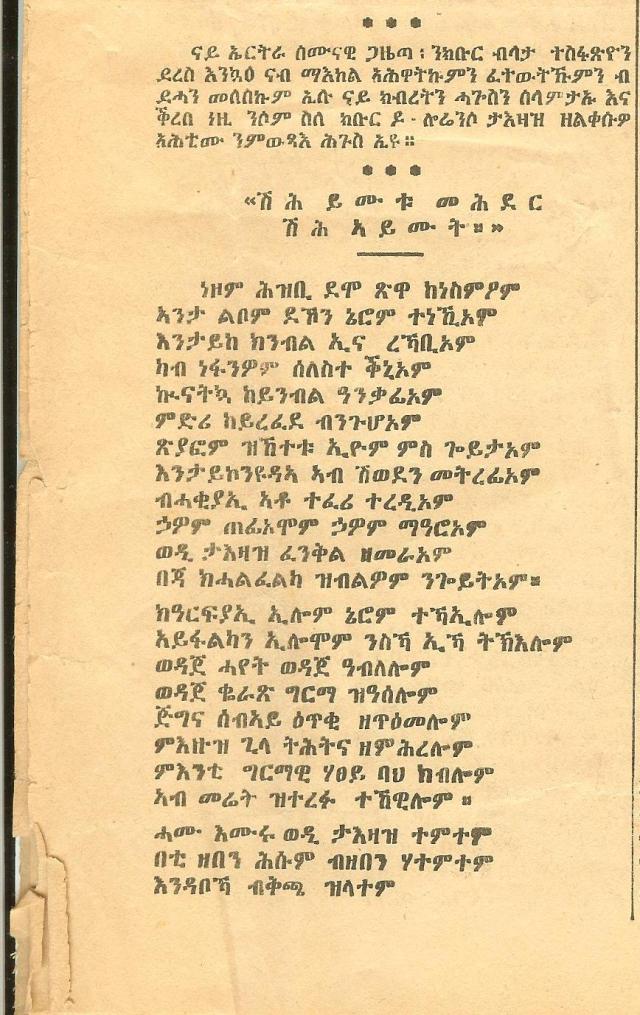 ናይ ኤርትራ ሰሙናዊ ጋዜጣ ፡ ንክቡር ብላታ ተስፋጽዮን
ደረስ እንኳዕ ናብ ማእከል ኣሕዋትኩምን ፈተውትኹምን ብ
ደሓን መለሰኩም ኢሉ ናይ ክብረትን ሓጐስን ሰላምታኡ እና
ቕረበ ነዚ ንሶም ስለ ክቡር ዶ · ሎሬንሶ ታእዛዝ ዘልቀሱዎ
ኣሕቲሙ ንምውጻእ ሕጉስ ኢዩ ።
«ሽሕ ይሙቱ መሕደር
ሽሕ ኣይሙት ። »
ነዞም ሕዝቢ ደሞ ጽዋ ከነስምዖም
ኣንታ ልቦም ደኽን ኔሮም ተነኺኦም
እንታይከ ክንብል ኢና ረኻቢኦም
ካብ ነፋንዎም ሰለስተ ቕኒኦም
ኲናትኳ ከይንብል ዓንቃፊኦም
ምድሪ ከይረፈደ ብንጉሆኦም
ጽያፎም ዝኸተቱ ኢዮም ምስ ጐይታኦም
እንታይኮንዩዳኣ ኣብ ሽወደን መትረፊኦም
ብሓቂያኢ ኣቶ ተፈሪ ተረዲኦም
ኃዎም ጠፊኦሞም ኃዎም ማዓሮኦም
ወዲ ታእዛዝ ፈንቅል ዘመራኦም
በጃ ክሓልፈልካ ዝብልዎም ንጐይትኦም።
ክዓርፍያኢ ኢሎም ኔሮም ተኻኢሎም
ኣይፋልካን ኢሎሞም ንስኻ ኢኻ ትኽእሎም
ወዳጀ ሓየት ወዳጀ ዓብለሎም
ወዳጀ ቈራጽ ግርማ ዝዓሰሎም
ጅግና ሰብኣይ ዕጥቂ ዘጥዕመሎም
ምእዙዝ ጊላ ትሕትና ዘምሕረሎም
ምእንቲ ግርማዊ ሃፀይ ባህ ክብሎም
ኣብ መሬት ዝተረፉ ተኸዊሎም ።
ሓሙ እሙሩ ወዲ ታእዛዝ ተምተም
በቲ ዘበን ሕሱም ብዘበን ሃተምተም
እንዳቦኻ ብቅጫ ዝላተም